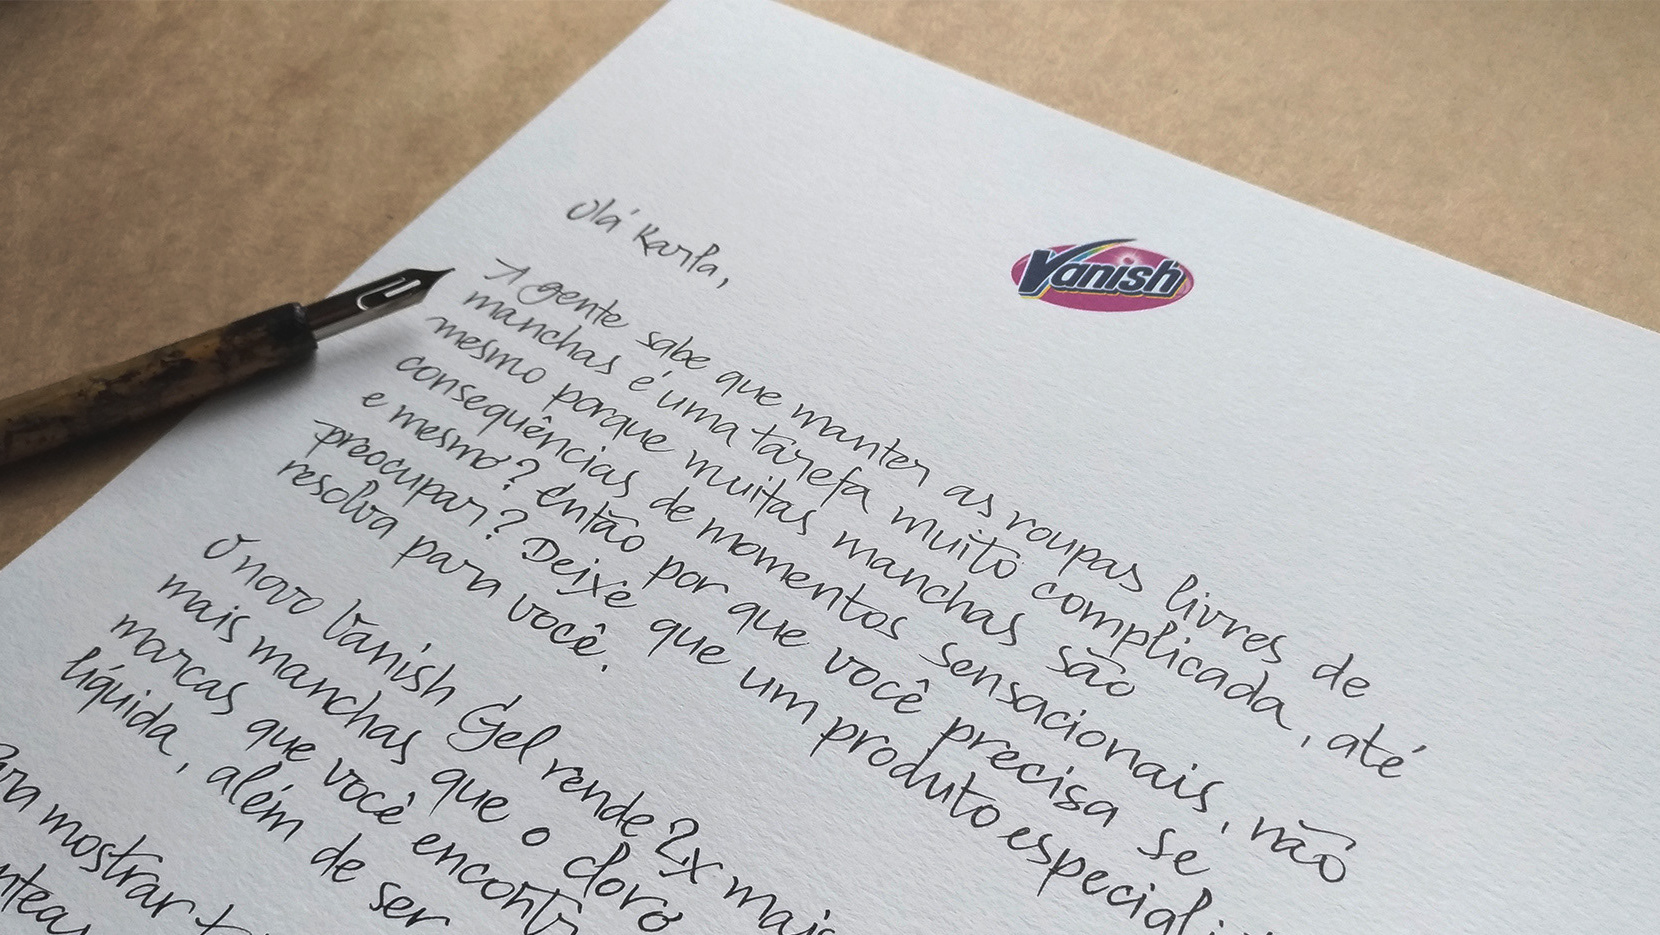 Vanish
Olá Karla,
A gente sabe que manter as roupas livres de
manchas é uma tarefa muito complicada, até
mesmo porque muitas manchas são
consequências de momentos sensacionais, não
e mesmo? Então por que você precisa se
preocupar? Deixe que um produto
resolva para você.
O novo Vanish Gel rende 2x mais
mais manchas que o cloro
marcas que você
líquida, além de ser
mostrar